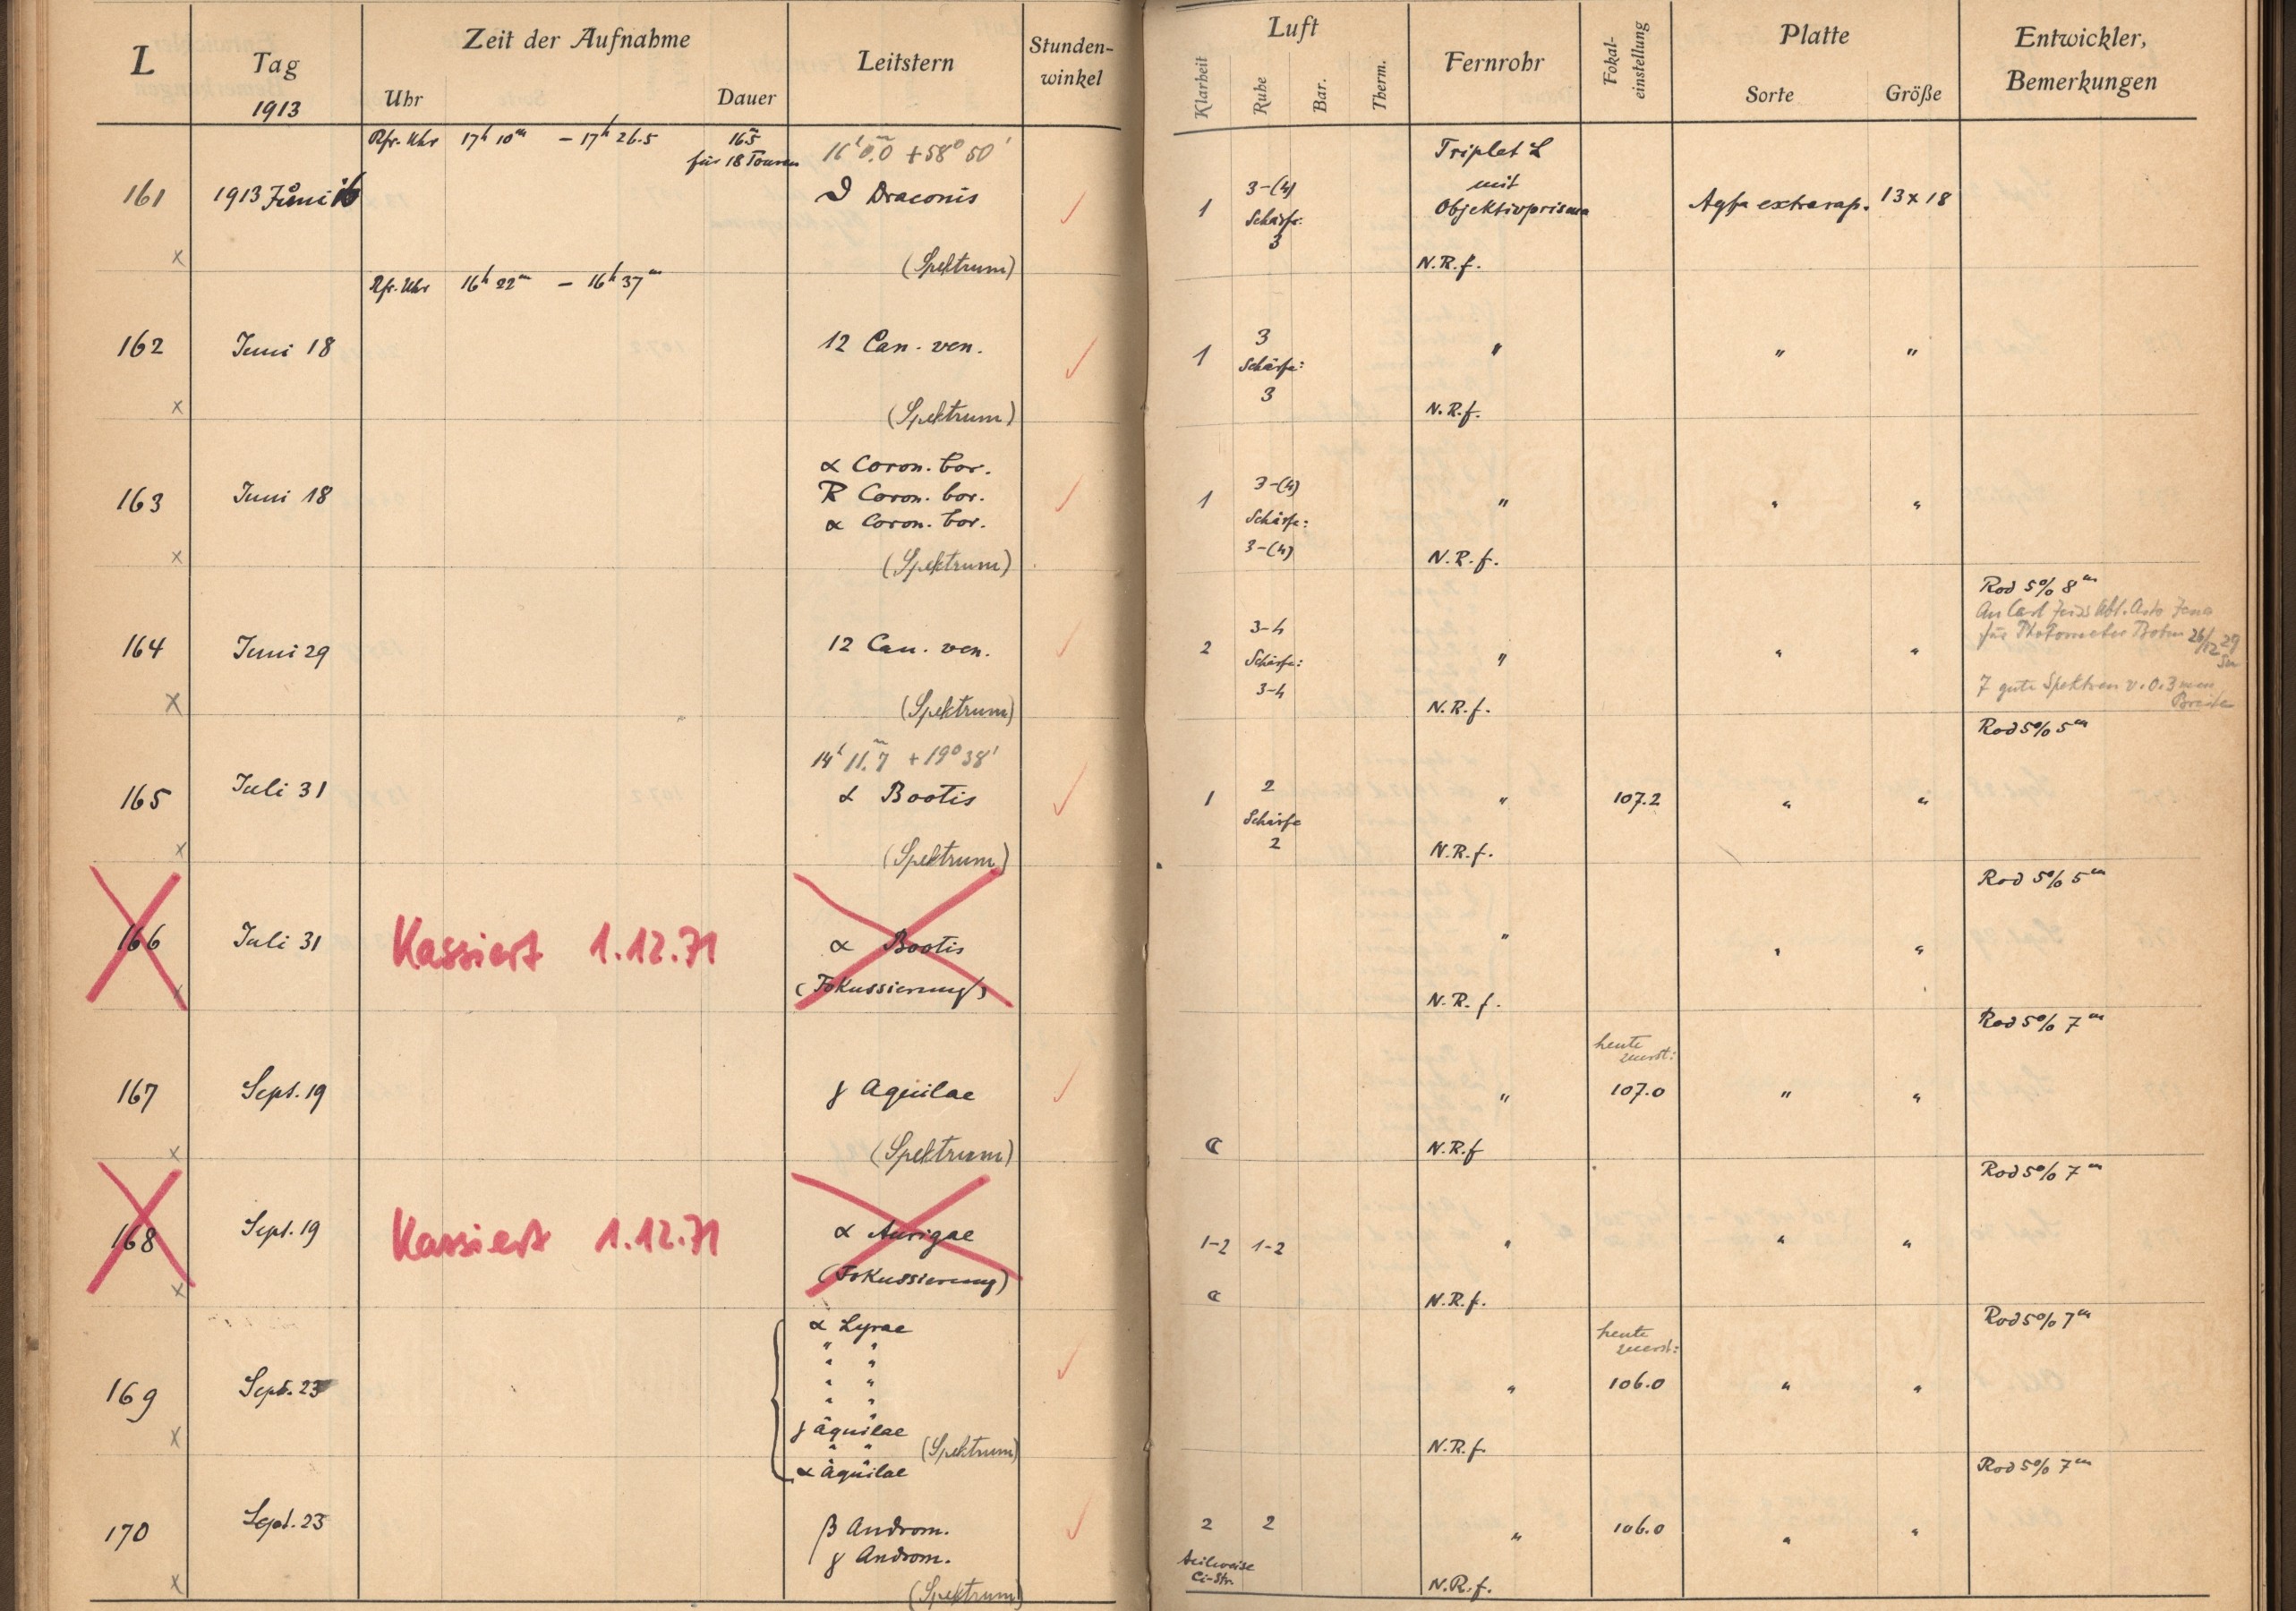 L
Tag
1913
Zeit der Aufnahme
Uhr
Dauer
Leitstern
Stunden-
winkel
Luft
Klarheit
Ruhe
Bar.
Therm.
Fernrohr
Fokal-
einstellung
Platte
Sorte
Größe
Entwickler,
Bemerkungen
Rfr. Uhr 17h 10m – 17h 26.5
16.5m
für 18 Touren
16h 0.m0 +58° 50'
161
1913 Juni 16
ϑ Draconis
(Spektrum)
1
3-(4)
Schärfe:
3
Triplet L
mit
Objektivprisma
N.R.f.
Agfa extrarap.
13 x 18
x
Rfr. Uhr 16h 22m – 16h 37m
162
Juni 18
12 Can. ven.
(Spektrum)
1
3
Schärfe:
3
"
N.R.f.
"
"
x
163
Juni 18
α Coron. bor.
R Coron. bor.
α Coron. bor.
(Spektrum)
1
3-(4)
Schärfe:
3-(4)
"
N.R.f.
"
"
x
164
Juni 29
12 Can. ven.
(Spektrum)
2
3-4
Schärfe:
3-4
"
N.R.f.
"
"
Rod 5% 8m
An Carl Zeiss Abt. Astro Jena
für Photometer 26/12 29
7 gute Spektren v. 0.3 mm
Breite
x
14h 11.m7 +19° 38'
165
Juli 31
α Bootis
(Spektrum)
1
2
Schärfe
2
"
N.R.f.
107.2
"
"
Rod 5% 5m
x
166
Juli 31
Kassiert 1.12.71
α Bootis
(Fokussierung)
"
N.R.f.
"
"
Rod 5% 5m
x
167
Sept. 19
γ Aquilae
(Spektrum)
"
N.R.f
heute
zuerst:
107.0
"
"
Rod 5% 7m
x
168
Sept. 19
Kassiert 1.12.71
α Aurigae
(Fokussierung)
1-2
1-2
"
N.R.f.
"
"
Rod 5% 7m
x
169
Sept. 23
α Lyrae
" "
" "
" "
" "
γ Aquilae
" "
(Spektrum)
α Aquilae
"
N.R.f.
heute
zuerst:
106.0
"
"
Rod 5% 7m
x
170
Sept. 23
β Androm.
γ Androm.
(Spektrum)
2
2
teilweise
Ci-Str.
"
N.R.f.
106.0
"
"
Rod 5% 7m
x